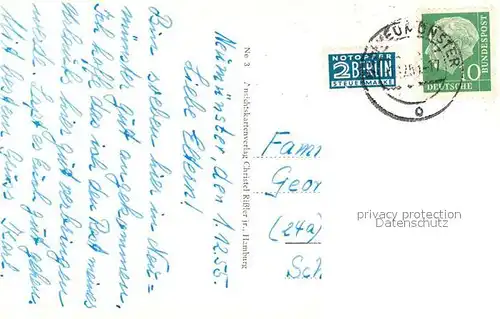 Neumünster, den 1.12.55.
Liebe Eltern!
Bin soeben hier in Neu=
münster gut angekommen.
Ich hoffe, das ich den Rest meines
Urlaub hier gut verbringen
werde. Laßt es Euch gut gehen.
Mit bestem Gruss Karl.
No 3 Ansichtskartenverlag Christel Rißler jr., Hamburg
NOTOPFER
2 BERLIN
STEUERMARKE
NEUMÜNSTER
10
DEUTSCHE
BUNDESPOST
Fami
Geor
(24a)
Sch
privacy protection
Datenschutz